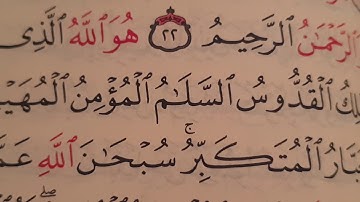 ٱلرَّحۡمَٰنُ ٱلرَّحِيمُ ٢٢ هُوَ ٱللَّهُ ٱلَّذِي
لِكُ ٱلۡقُدُّوسُ ٱلسَّلَٰمُ ٱلۡمُؤۡمِنُ ٱلۡمُهَيۡ
بَّارُ ٱلۡمُتَكَبِّرُۚ سُبۡحَٰنَ ٱللَّهِ عَمَّ